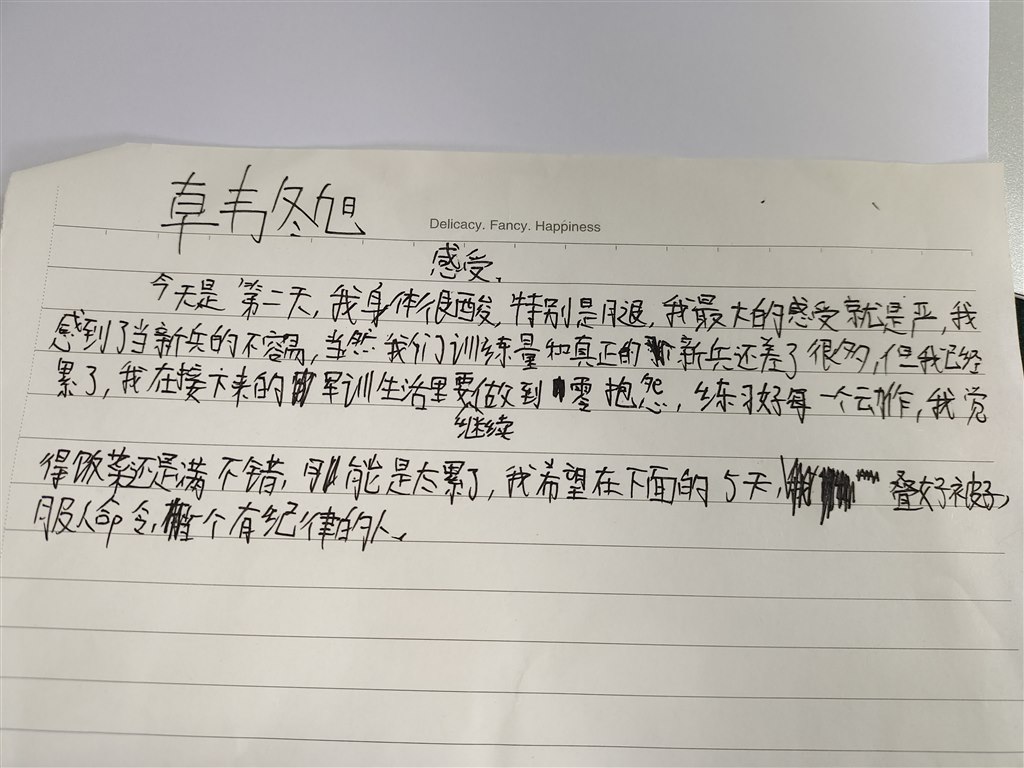 卓韦冬旭
Delicacy. Fancy. Happiness
感受.
今天是第二天,我身体很酸,特别是月退,我最大的感受就是严,我
感到了当新兵的不容易,当然我们训练量和真正的新兵还差了很多,但我已经
累了,我在接下来的军训生活里要做到零抱怨,练习好每一个动作,我觉
继续
得饭菜还是满不错,可能是太累了,我希望在下面的5天,叠好被子,
服从命令,做个有纪律的人.